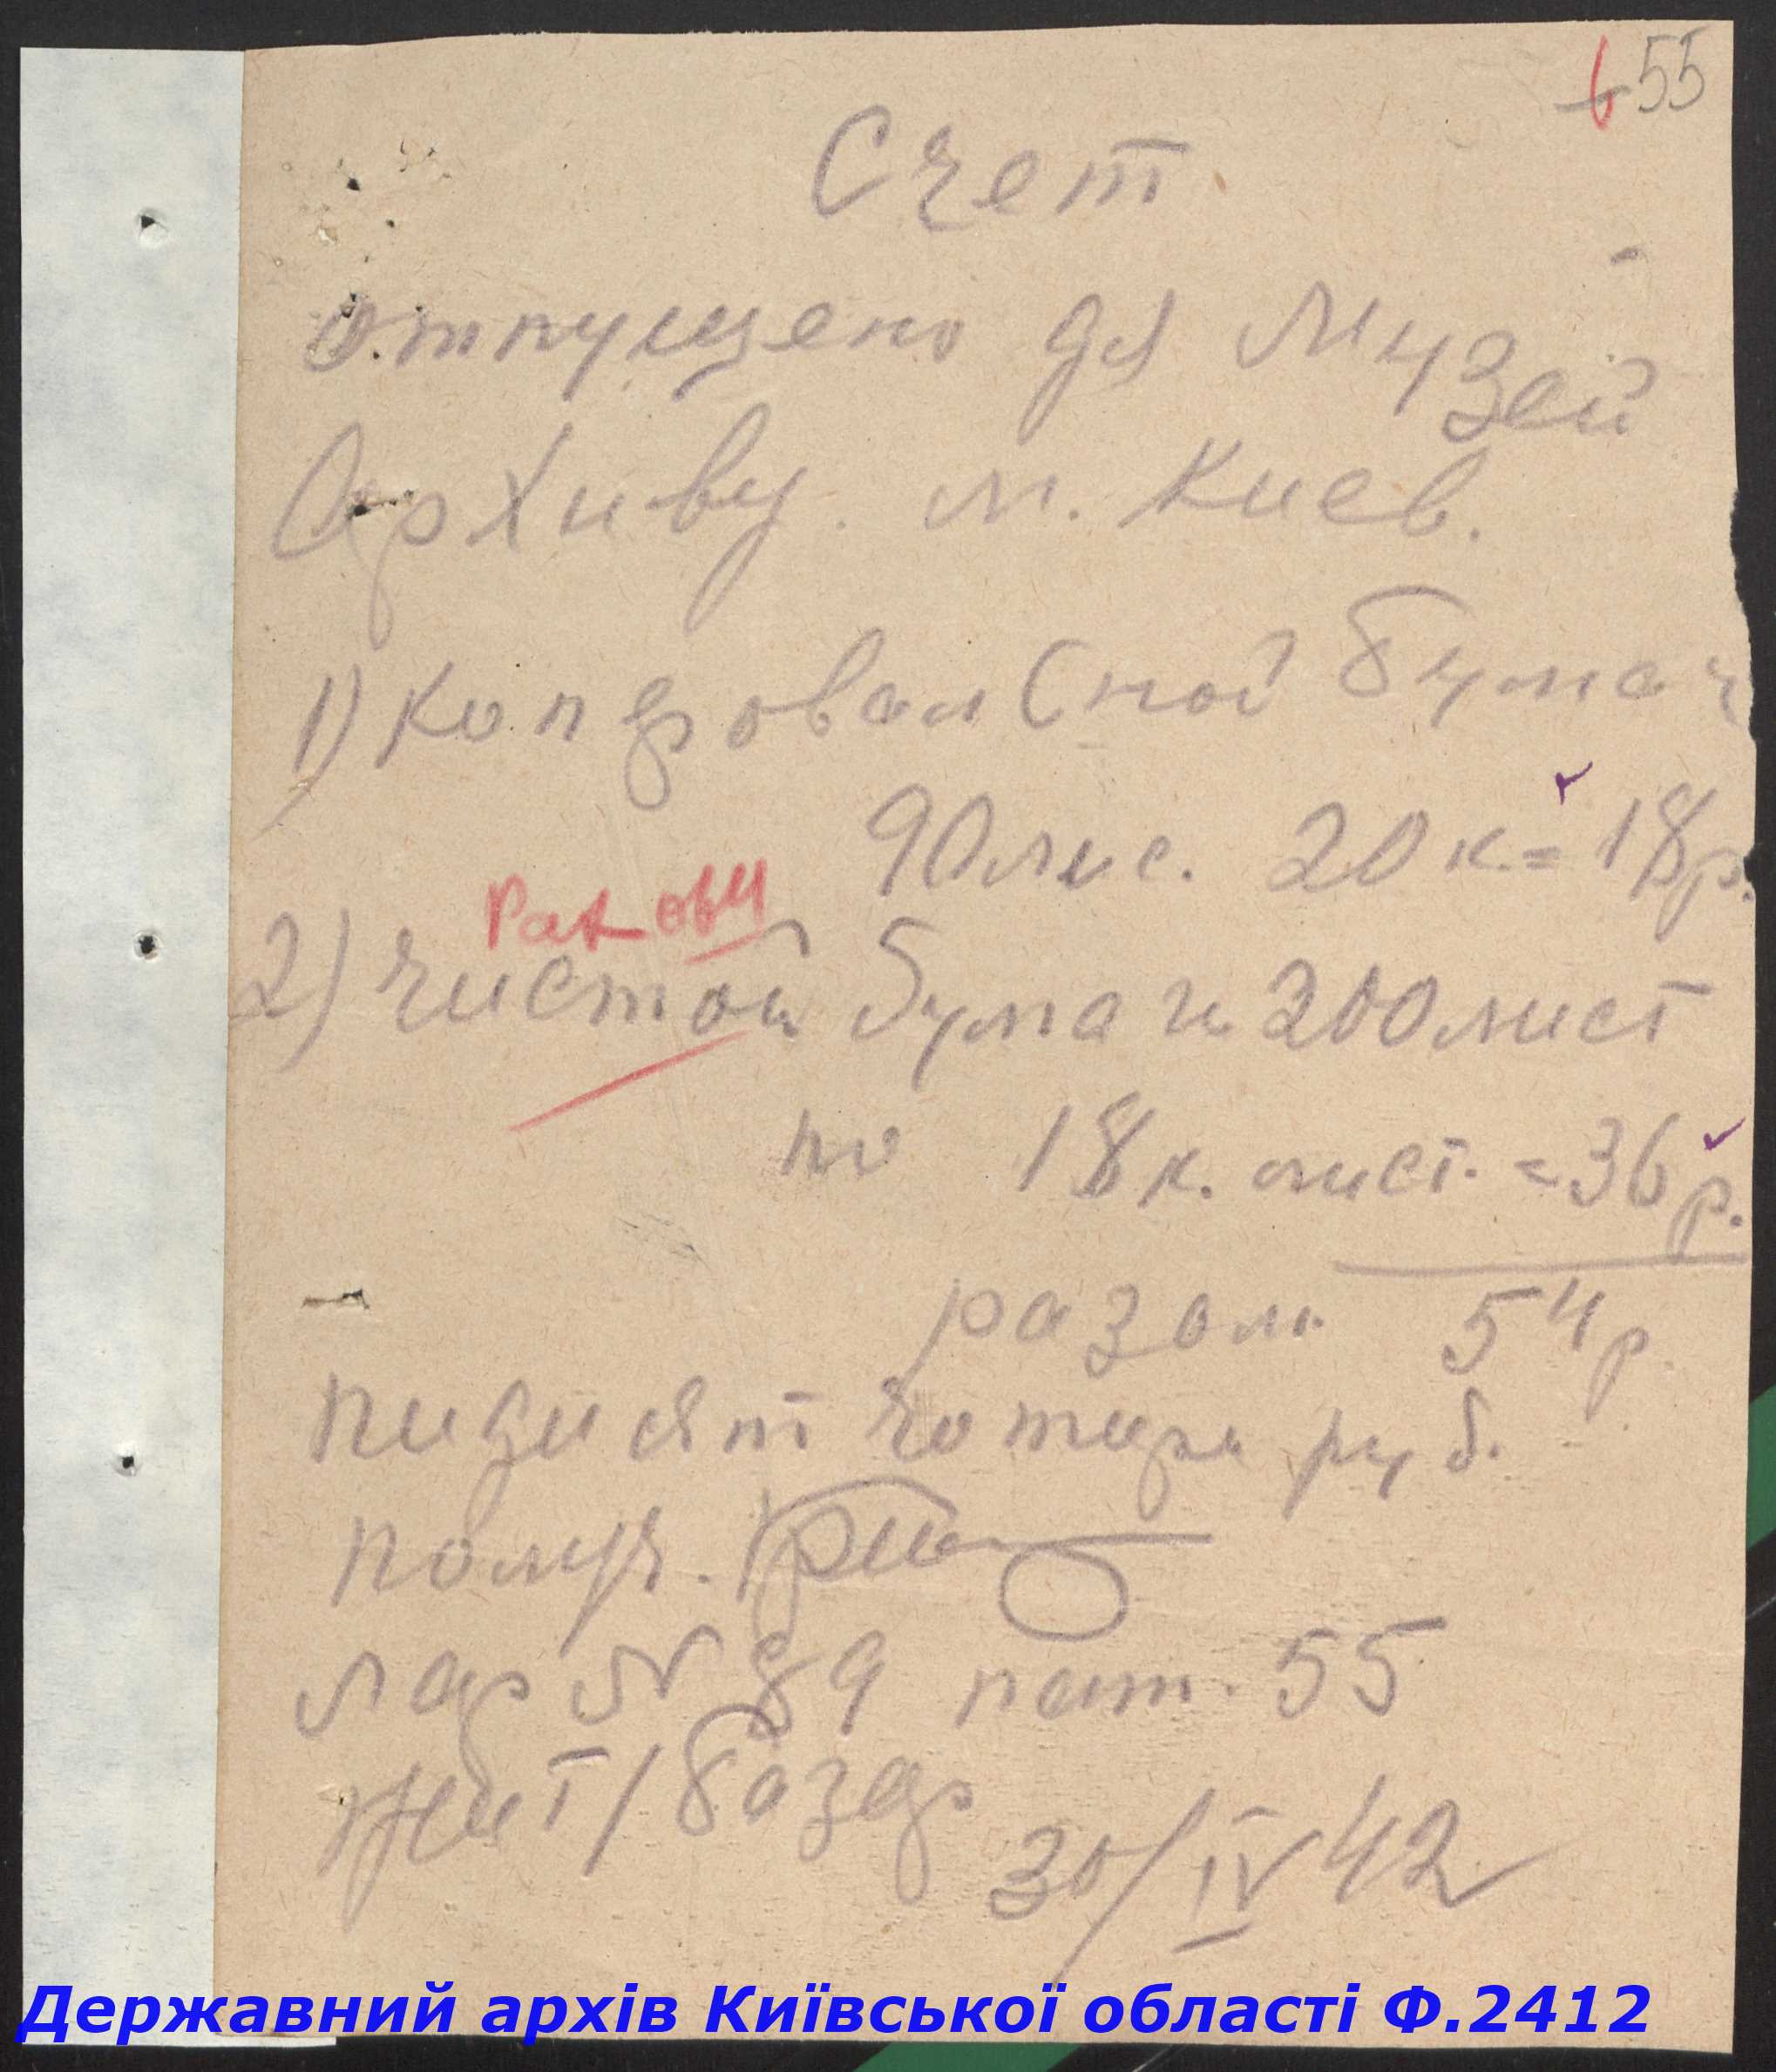 6 55
Счет.
отпущено для Музей
Архиву. м. Киев.
1) копировальной бумаг
90 лис. 20 к = 18 р.
Ракови
2) чистой бумаги 200 лист
по 18 к. лист. = 36 р.
разом 54 р.
пидисят чотири руб.
получ.
лар № 89 пат. 55
Жит/базар
30/IV 42
Державний архів Київської області Ф.2412